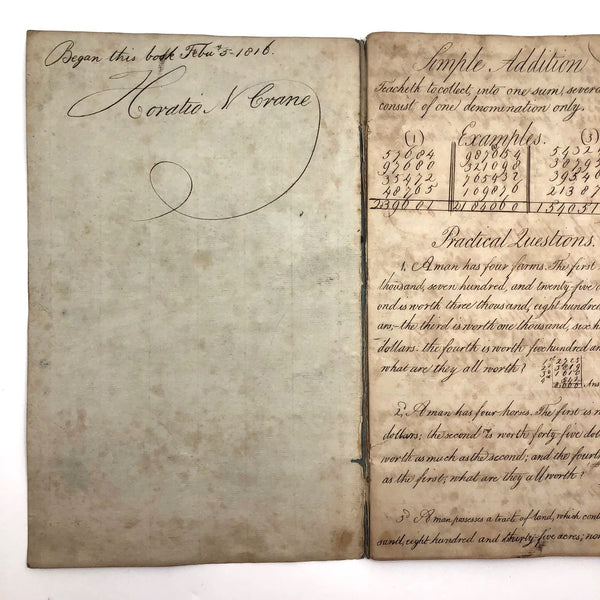 Began this book Feby 5- 1816.
Horatio N Crane
Simple Addition
Teacheth to collect, into one sum, severa
consist of one denomination only.
Examples.
(1) (3)
57684 987654 5432
97680 321090 38795
35472 765432 39540
48765 109876 21387
239601 2184060 154051
Practical Questions.
1. A man has four farms. The first
thousand, seven hundred, and twenty-five
ond is worth three thousand, eight hundred
ars;- the third is worth one thousand, six h
dollars- the fourth is worth five hundred an
what are they all worth? Ans
2. A man has four horses. The first is
dollars; the second is worth forty-five dol
worth as much as the second; and the fourt
as the first; what are they all worth?
3. A man possesses a tracte of land, which cont
sand, eight hundred and thirty-five acres; no